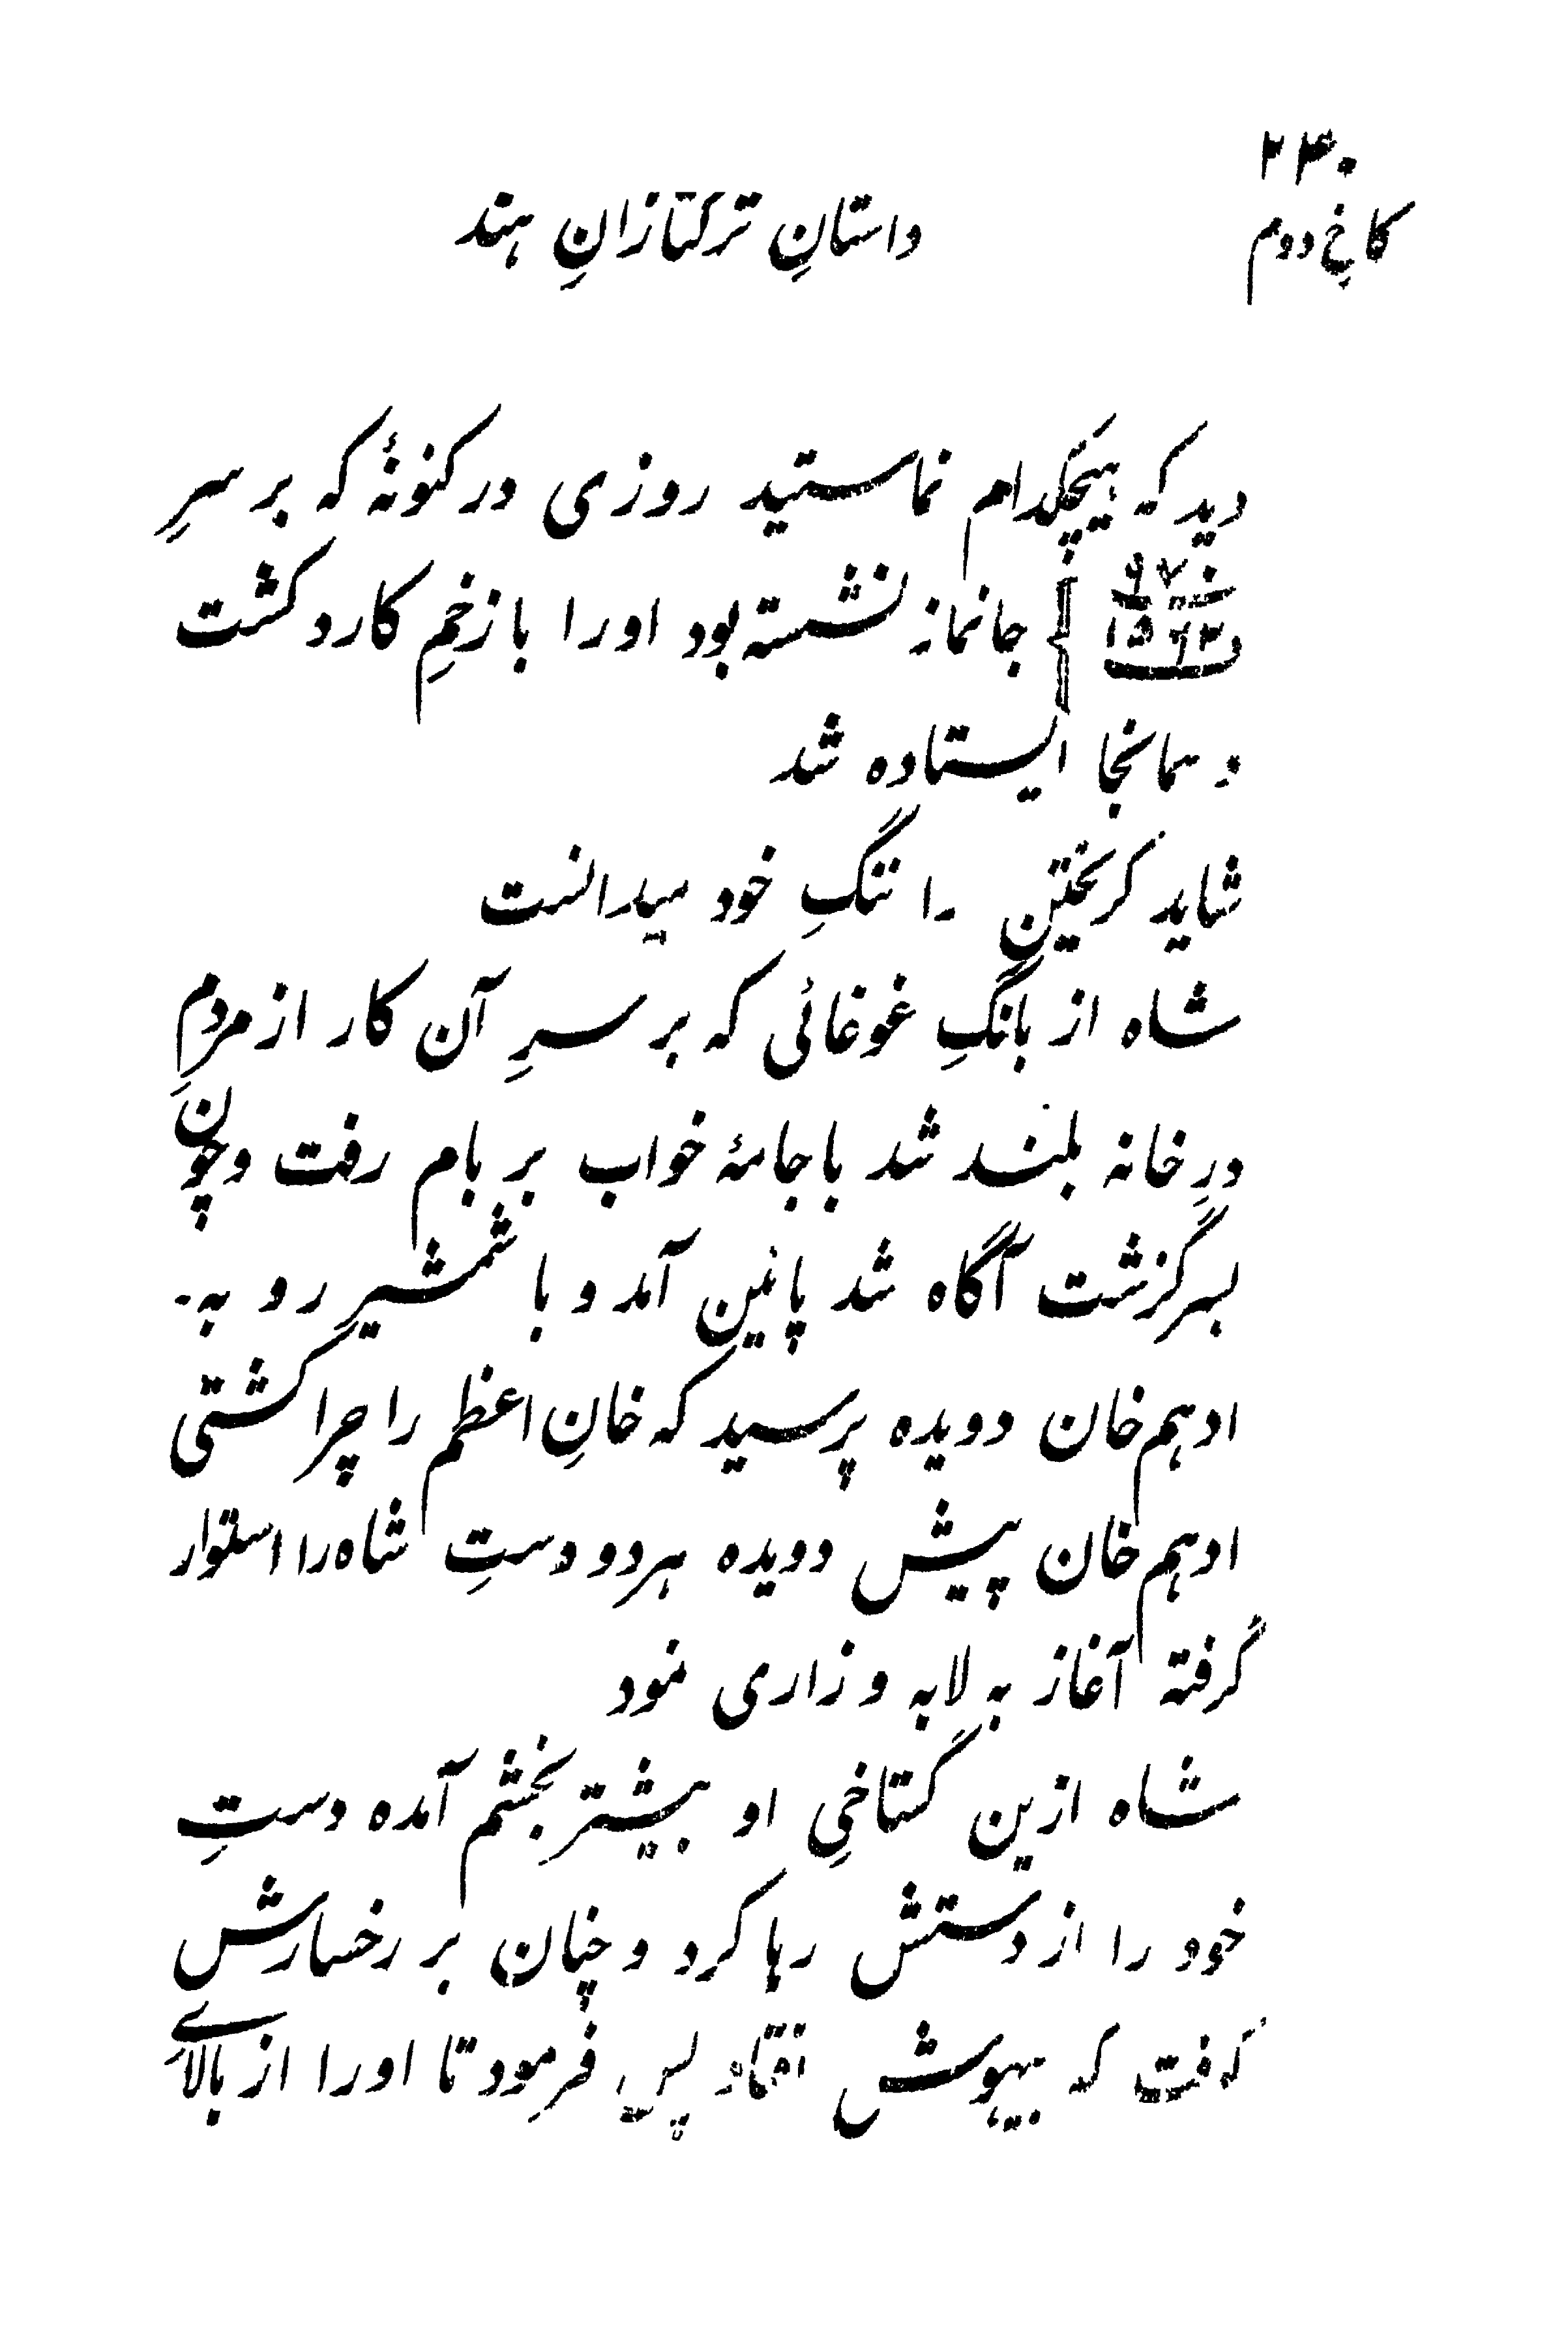 ۲۴۰
کاخِ دوم
داستانِ ترکتازانِ هند
دید که هیچکدام نماستید روزی در کنونهٔ که بر سرِ
جانماز نشسته بود او را با زخمِ کارد کشت
و همانجا ایستاده شد
شاید گریختن را ننگِ خود میدانست
شاه از بانگِ غوغائی که بر سرِ آن کار از مردمِ
درِ خانه بلند شد با جامهٔ خواب بر بام رفت و چون
بسرگزشت آگاه شد پائین آمد و با شمشیر رو به
ادهم خان دویده پرسید که خانِ اعظم را چرا کشتی
ادهم خان پیش دویده هر دو دستِ شاه را استوار
گرفته آغاز به لابه و زاری نمود
شاه ازین گستاخیِ او بیشتر بخشم آمده دستِ
خود را از دستش رها کرد و چنان بر رخسارش
کوفت که بیهوش افتاد پس فرمود تا او را از بالای